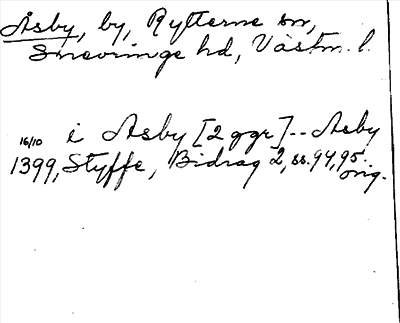 Åsby, by, Rytterne sn,
Snevringe hd, Västm. l.
16/10 i Asby [2 ggr] -- Asby
1399, Styffe, Bidrag 2, ss. 94, 95.
orig.